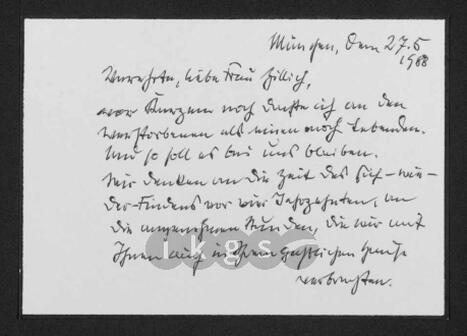 München, dem 27.5
1988
Verehrte, liebe Frau Zillich,
vor Kurzem noch dachte ich an den
Verstorbenen als einen noch Lebenden.
Und so soll es bei uns bleiben.
Wir denken an die Zeit des Sich-wie-
der-Findens vor vier Jahrzehnten, an
die angenehmen Stunden, die wir mit
Ihnen auch in Ihrem gastlichen Hause
verbrachten.
ikgs